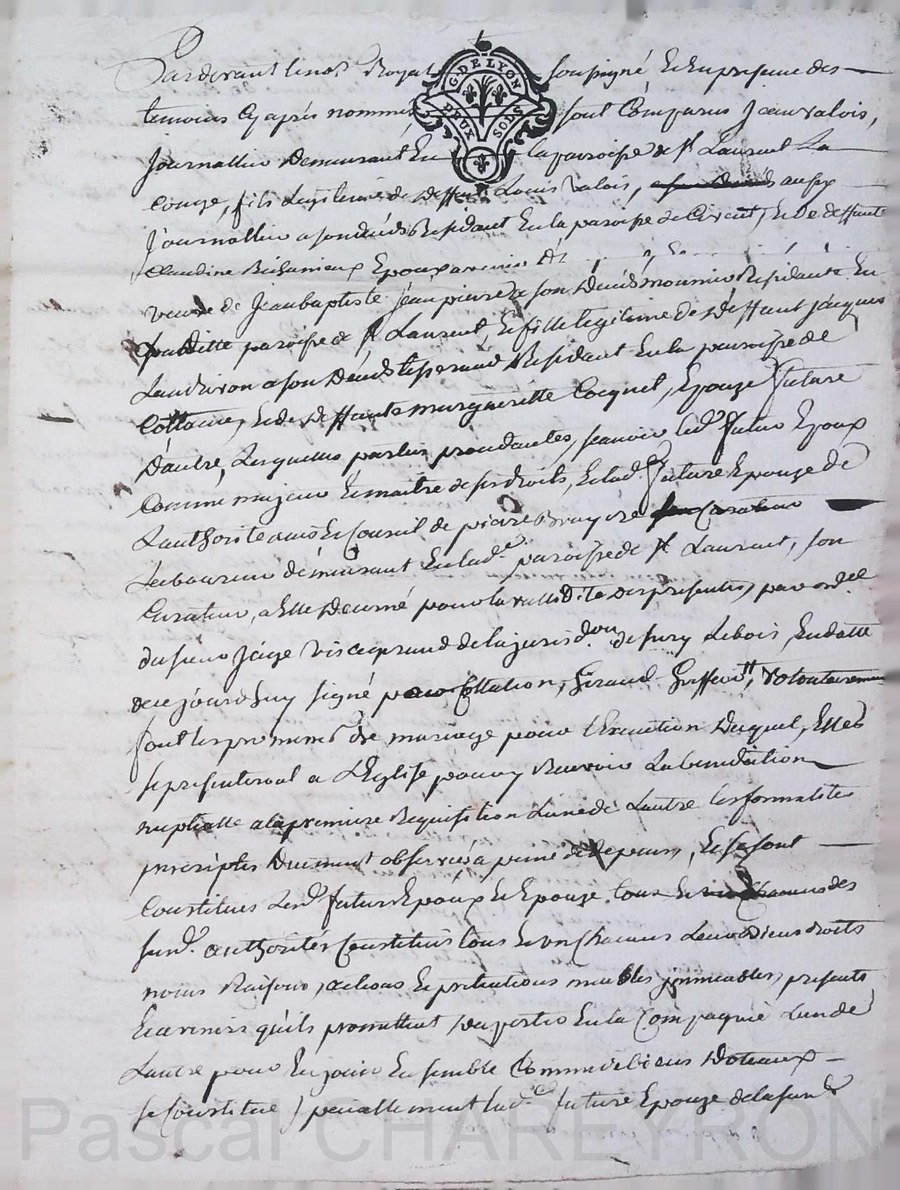 Pardevant le not.e Royal soussigné Et En presence des
temoins Cy aprés nommés sont Comparus Jean valois,
Journallier Demeurant En la paroisse de S.t Laurent La
Conge, fils Legitime de deffunt Louis valois, aussy
Journallier a son deceds Residant En la paroisse de Civent, Et De deffunte
Claudine Epoux avenir
veuve de Jean baptiste Jean pierre a son Deceds meunier Residante En
laditte paroisse de S.t Laurent, Et fille legitime de Deffunt Jacques
Landivon a son Deceds tisserand Residant En la paroisse de
Cottance, Et de deffunte marguerite Cocquel, Epouze future
D'autre, Lesquelles parties procedantes, scavoir led.t futur Epoux
Comme majeur Et maitre de ses droits, Et lad.e future Epouze De
L'authorité avis Et Conseil de pierre Bruyere
Laboureur demeurant En lad.e paroisse de S.t Laurent, son
Curateur, a Elle Decerné pour la validité des presentes, par ord.ce
du sieur Juge visegerand de la jurisd.on de Sury Lebois, En datte
de ce jourd'huy signé par Collation, Giraud Greffier, volontairement
font les promesses de mariage pour l'Execution Duquel, Elles
se presenteront a L'Eglise pour y Recevoir La benediction
nuptialle a la premiere Requisition L'une de L'autre les formalités
prescriptes Duement observées a peine de Depens, Et se sont
Constitués Lesd.s futurs Epoux Et Epouze, tous Et un Chacuns des
surd. authorités Constitués tous Et un Chacuns Leurs biens droits
noms Raisons, actions Et pretentions meubles immeubles, presents
Et avenirs qu'ils promettent Supporter En la Compagnie L'un de
L'autre pour En jouir Ensemble Comme biens Dotaux
se Constitue specialement lad.e future Epouze de la surd.e
G. DE LYON
DEUX SOLS
Pascal CHAREYRON